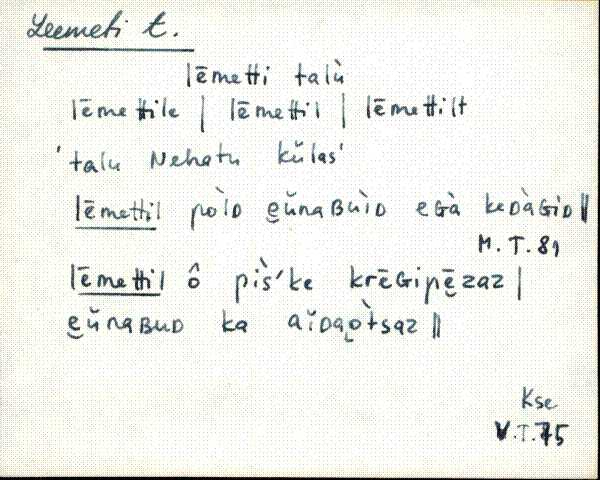 Leemeti t.
lēmetti talù
lēmettile | lēmettil | lēmettilt
'talu Nehatu külas'
lēmettil pòlD e̮ŭnaBùiD eGà keDàGiD ‖
M.T. 81
lēmettil ô pìs'ke krēGipē̮zaz |
e̮ŭnaBuD ka aĭDao̭tsaz ‖
Kse
V.T. 75